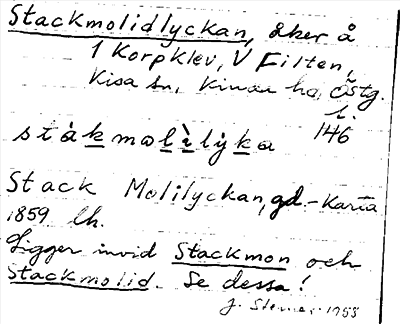 Stackmolidlyckan, åker å
1 Korpklev, V Filten,
Kisa sn, Kinda hd, Östg.
l.
146
stàkmolìlỳka
Stack Molilyckan, gd.-Karta
1859 lh.
Ligger invid Stackmon och
Stackmolid. Se dessa!
J. 1955